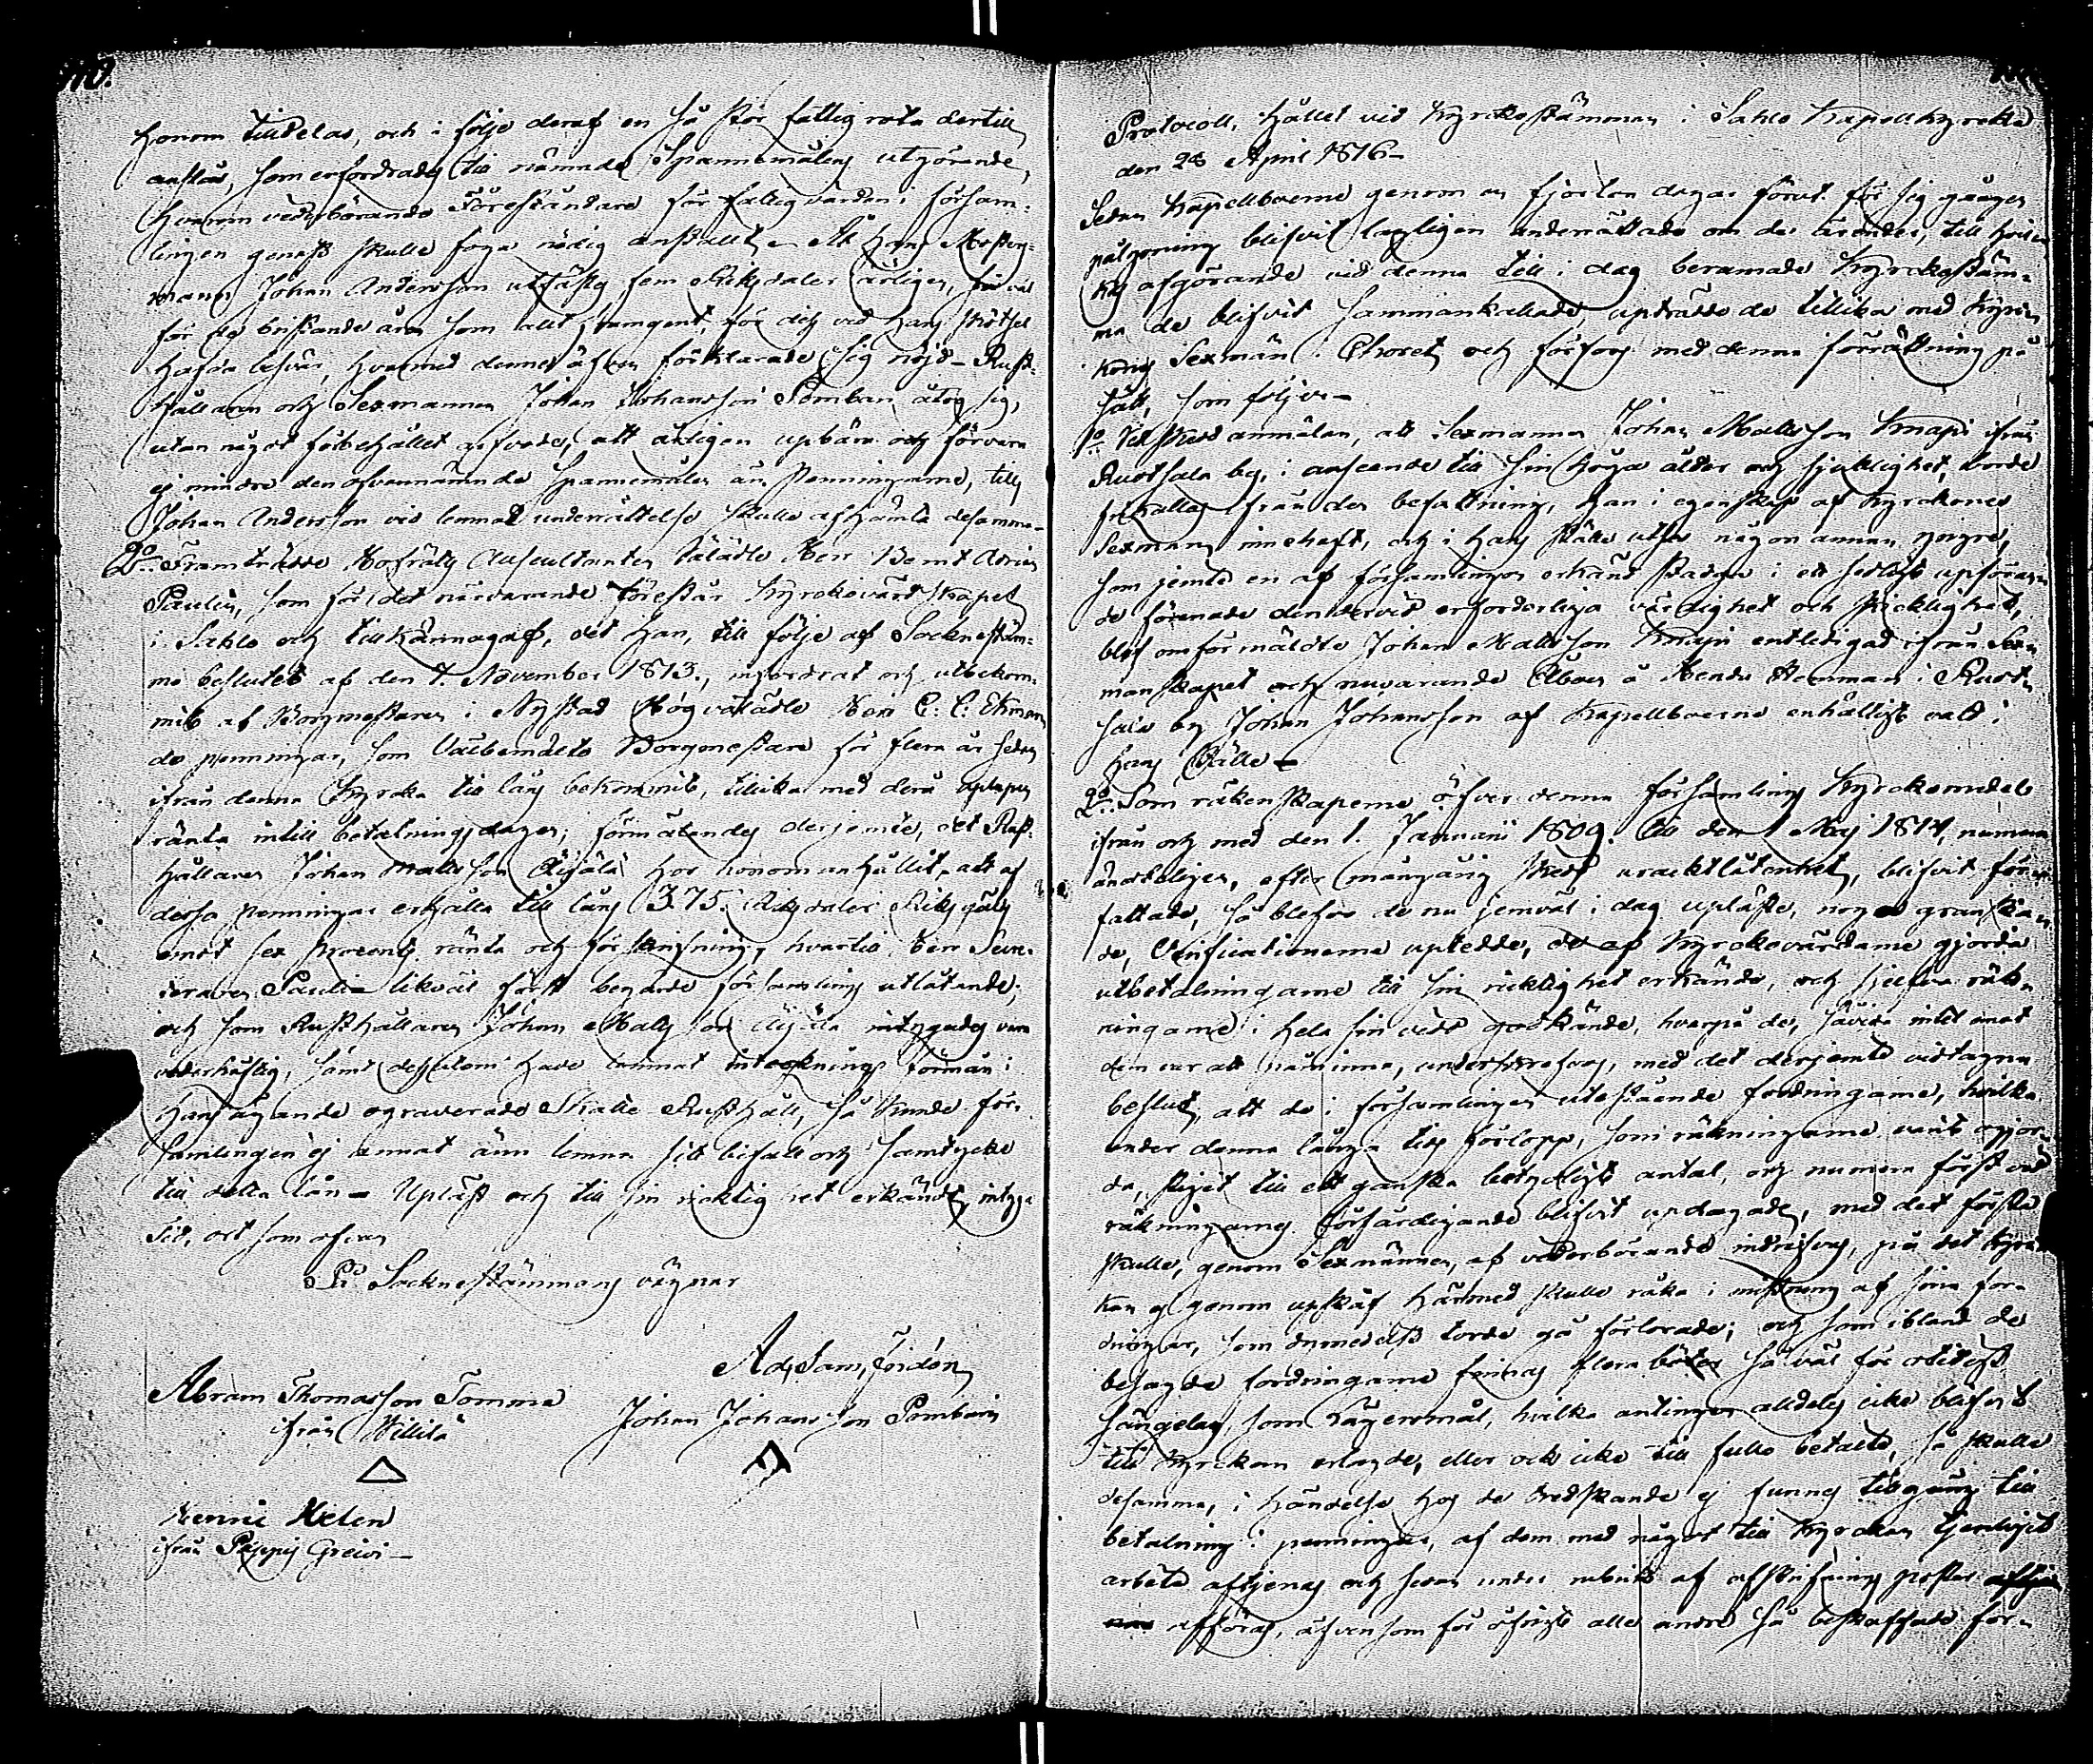 110.
honom tilldelas, och i följe deraf en så stor fattig rota dertill
anslås, som erfordrades till nämnde Spannemåls utgörande,
hvarom vederbörande Föreståndare för fattigvården i försam-
lingen genast skulle foga nödig anstallt. Åt hans
mann Johan Andersson utfästes fem Riksdaler årligen, så väl
för de bristande åren som allt framgent, för des vid hans skötsel
hafda besvär, hvarmed denne äfven förklarade sig nöjd – Rust-
hållaren och Sexmannen Johan Johansson Pomban, åtog sig,
utan något förbehållet arfvode, att årligen upbära och förvara
ej mindre den ofvannämnde Spannemålen än Penningarne, till
Johan Andersson vid lemnad underrättelse skulle afhämta desamma –
2o Framträdde Hofrätts Auscultanten Välädle Herr Bernt Adrian
Paulin, som för det närvarande förestår Kyrkovärdskapet
i Sahlo och tillkännagaf, det han, till följe af Sockneståm-
mo beslutet af den 7. November 1813, infordrat och utbekom-
mit af Borgmästaren i Nystad Högvälädle Herr C. C. Ekman
de penningar, som Välbemälte Borgmestare för flera år sedan
ifrån denna Kyrcka till låns bekommit, tillika med derå uplupen
ränta intill betalningsdagen; förmälandes derjemte, det Rust-
hållaren Johan Mattsson Äijälä hos honom anhållit, att af
dessa penningar erhålla till låns 375. Riksdaler Riksgäls
emot sex procents ränta och försäkring, hvartill Herr
Paulin likväl först begärde församlings utlåtande;
och som Rusthållaren Johan Mattsson Äijälä intygades vara
vederhäftig, samt dessutom hade lemnat intecknings förmån i
hans ägande ograverade Skatte Rusthåll, så kunde för-
samlingen ej annat änn lemna sitt bifall och samtycke
till detta lån – Upläst och till sin richtighet erkändt, intyga
Tid, ort som ofvan
På Socknestämmans vägnar
Ad. Sam. Foidon
Abram Thomasson Tomma
ifrån Willilä
Johan Johansson Pomban
Henric Helen
ifrån Pappis Greivi –
Protocoll, hållet vid Kyrckostämman i Sahlo Kapellkyrcka
den 28 April 1816 –
Sedan Kapellboerne genom en fjorton dagar förut för sig gången
pålysning blifvit lagligen underrättade om de ärender, till hvilc-
kas afgörande vid denna till i dag beramade Kyrckostäm-
ma de blifvit sammankallade, uptrådde de tillika med Kyrc-
kans Sexmän i Choret, och förfors med denna förrättning på
sätt, som följer –
1o Vid skedd anmälan, att Sexmannen Johan Mattsson Knapi ifrån
Ruotsala by, i anseende till sin höga ålder och sjuklighet, borde
frikallas ifrån den befattning, han i egenskap af Kyrckones
Sexmann innehaft, och i hans ställe utses någon annan yngre,
som jemte en af församlingen erkänd stadga i ett sedligt upföran-
de förenade den dervid erforderliga värdighet och skicklighet,
blef omförmäldte Johan Mattsson Knapi entledigad ifrån Sex-
manskapet och nuvarande Åboen å Hendo Hemman i Ruot-
sala by Johan Johansson af Kapellboerne enhälligt vald i
hans ställe –
2o Som räkenskaperne öfver denna församlings Kyrckomedel
ifrån och med den 1. Januarii 1809. till den 1 Maj 1814, numera
ändteligen, efter mångång skedd uraktlåtenhet, blifvit för-
fattade, så blefvo de nu jemväl i dag upläste, noga granska-
de, Verificationerne uptedde, de af Kyrckovärdarne gjorda
utbetalningarne till sin ricktighet erkände, och sjelfva räk-
ningarne i hela sin vidd godkände, hvarpå de, såvida intet emot
dem var att påminna, underskrefvos, med det derjemte vidtagna
beslut, att de i församlingen utestående fordringarne, hvilka
under denna långa tids förlopp, som räkningarne varit ogjor-
da, stigit till ett ganska betydligt antal, och numera först vid
räkningarnes förfärdigande blifvit updagade, med det första
skulle, genom Sexmännen, af vederbörande indrifvas, på det Kyrc-
kan ej genom upskåf härmed skulle råka i mistning af sina for-
dringar, som dymedelst torde gå förlorade; och som ibland de
besagde fordringarne finnas flera böter så väl för otidigt
sängelag, som Lägersmål, hvilka antingen alldeles icke blifvit
till Kyrckan erlagde, eller ock icke till fullo betalte, så skulle
desamma, i händelse hos de bredskande ej funnes tillgång till
betalning i penningar, af dem med något till Kyrckan tjenligit
arbete aftjenas och sedan under rubrik af afskrifnings poster
afföras, äfvensom för öfrigt alla andre så beskaffade for-